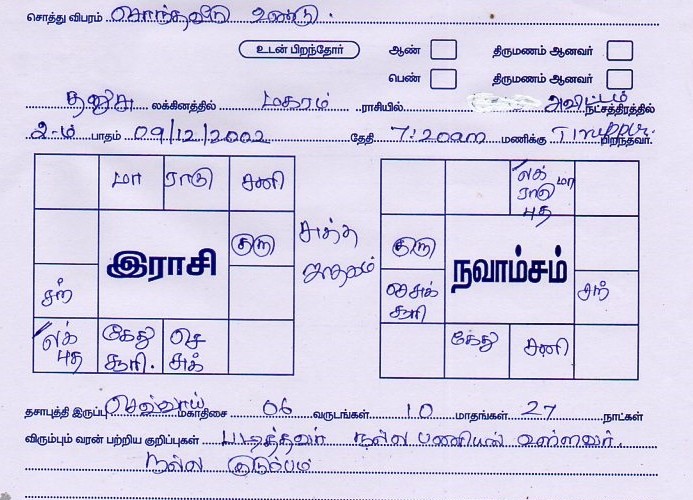 சொத்து விபரம் சொந்தவீடு உண்டு.
உடன் பிறந்தோர் ஆண் திருமணம் ஆனவர்
பெண் திருமணம் ஆனவர்
தனுசு லக்கினத்தில் மகரம் ராசியில் அவிட்டம் நட்சத்திரத்தில்
2-ம் பாதம் 09/12/2002 தேதி 7:20am மணிக்கு Tiruppur. பிறந்தவர்.
மா ராகு சனி
குரு
இராசி
சந்
லக் புத
கேது சூரி.
செ சுக்
சுத்த ஜாதகம்
லக் ராகு மா புத
குரு
நவாம்சம்
செ சுக் சூரி
சந்
கேது சனி
தசாபுத்தி இருப்பு செவ்வாய் மகாதிசை 06 வருடங்கள் 10 மாதங்கள் 27 நாட்கள்
விரும்பும் வரன் பற்றிய குறிப்புகள் படித்தவர் நல்ல பணியில் உள்ளவர்.
நல்ல குடும்பம்